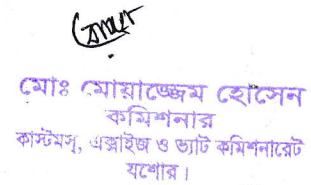 মোঃ মোয়াজ্জেম হোসেন
কমিশনার
কাস্টমস্, এক্সাইজ ও ভ্যাট কমিশনারেট
যশোর।